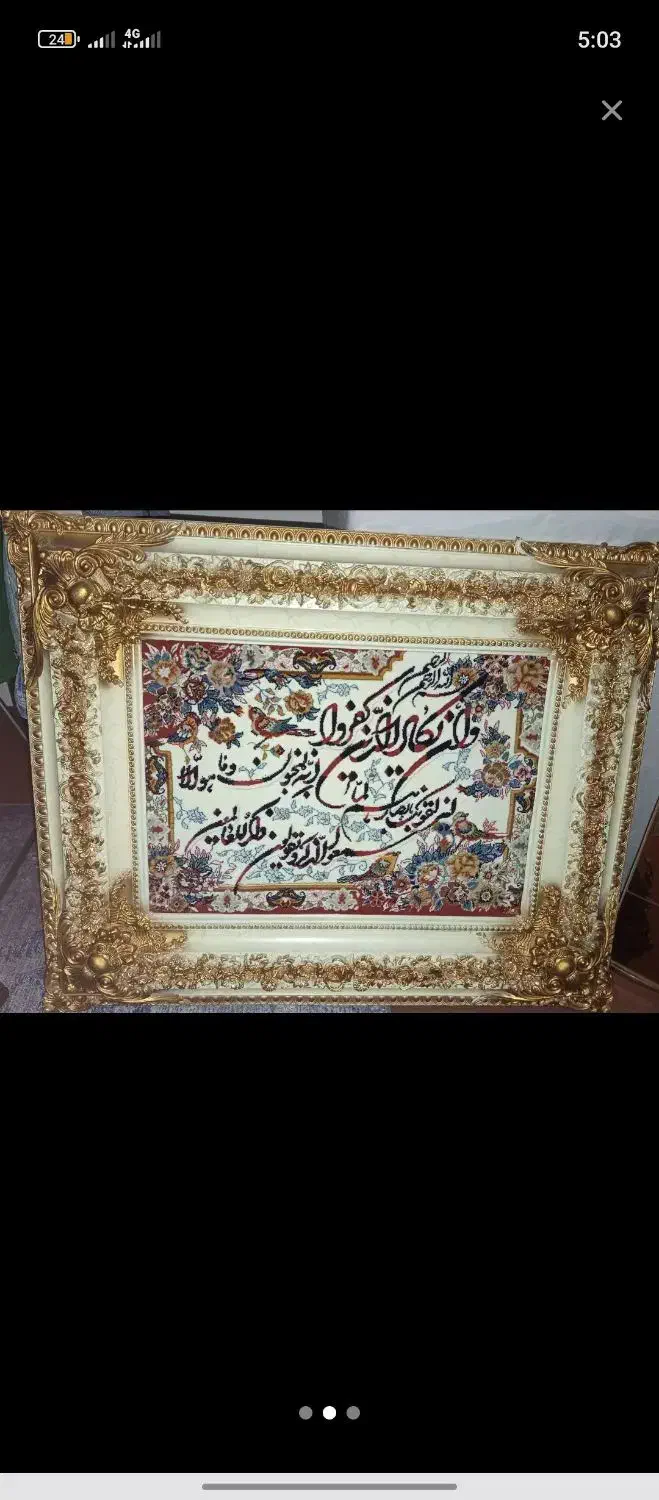 24
4G
5:03
بسم الله الرحمن الرحیم
وإن یکاد الذین کفروا
لیزلقونک بأبصارهم لما
سمعوا الذکر ویقولون
إنه لمجنون وما هو إلا
ذکر للعالمین